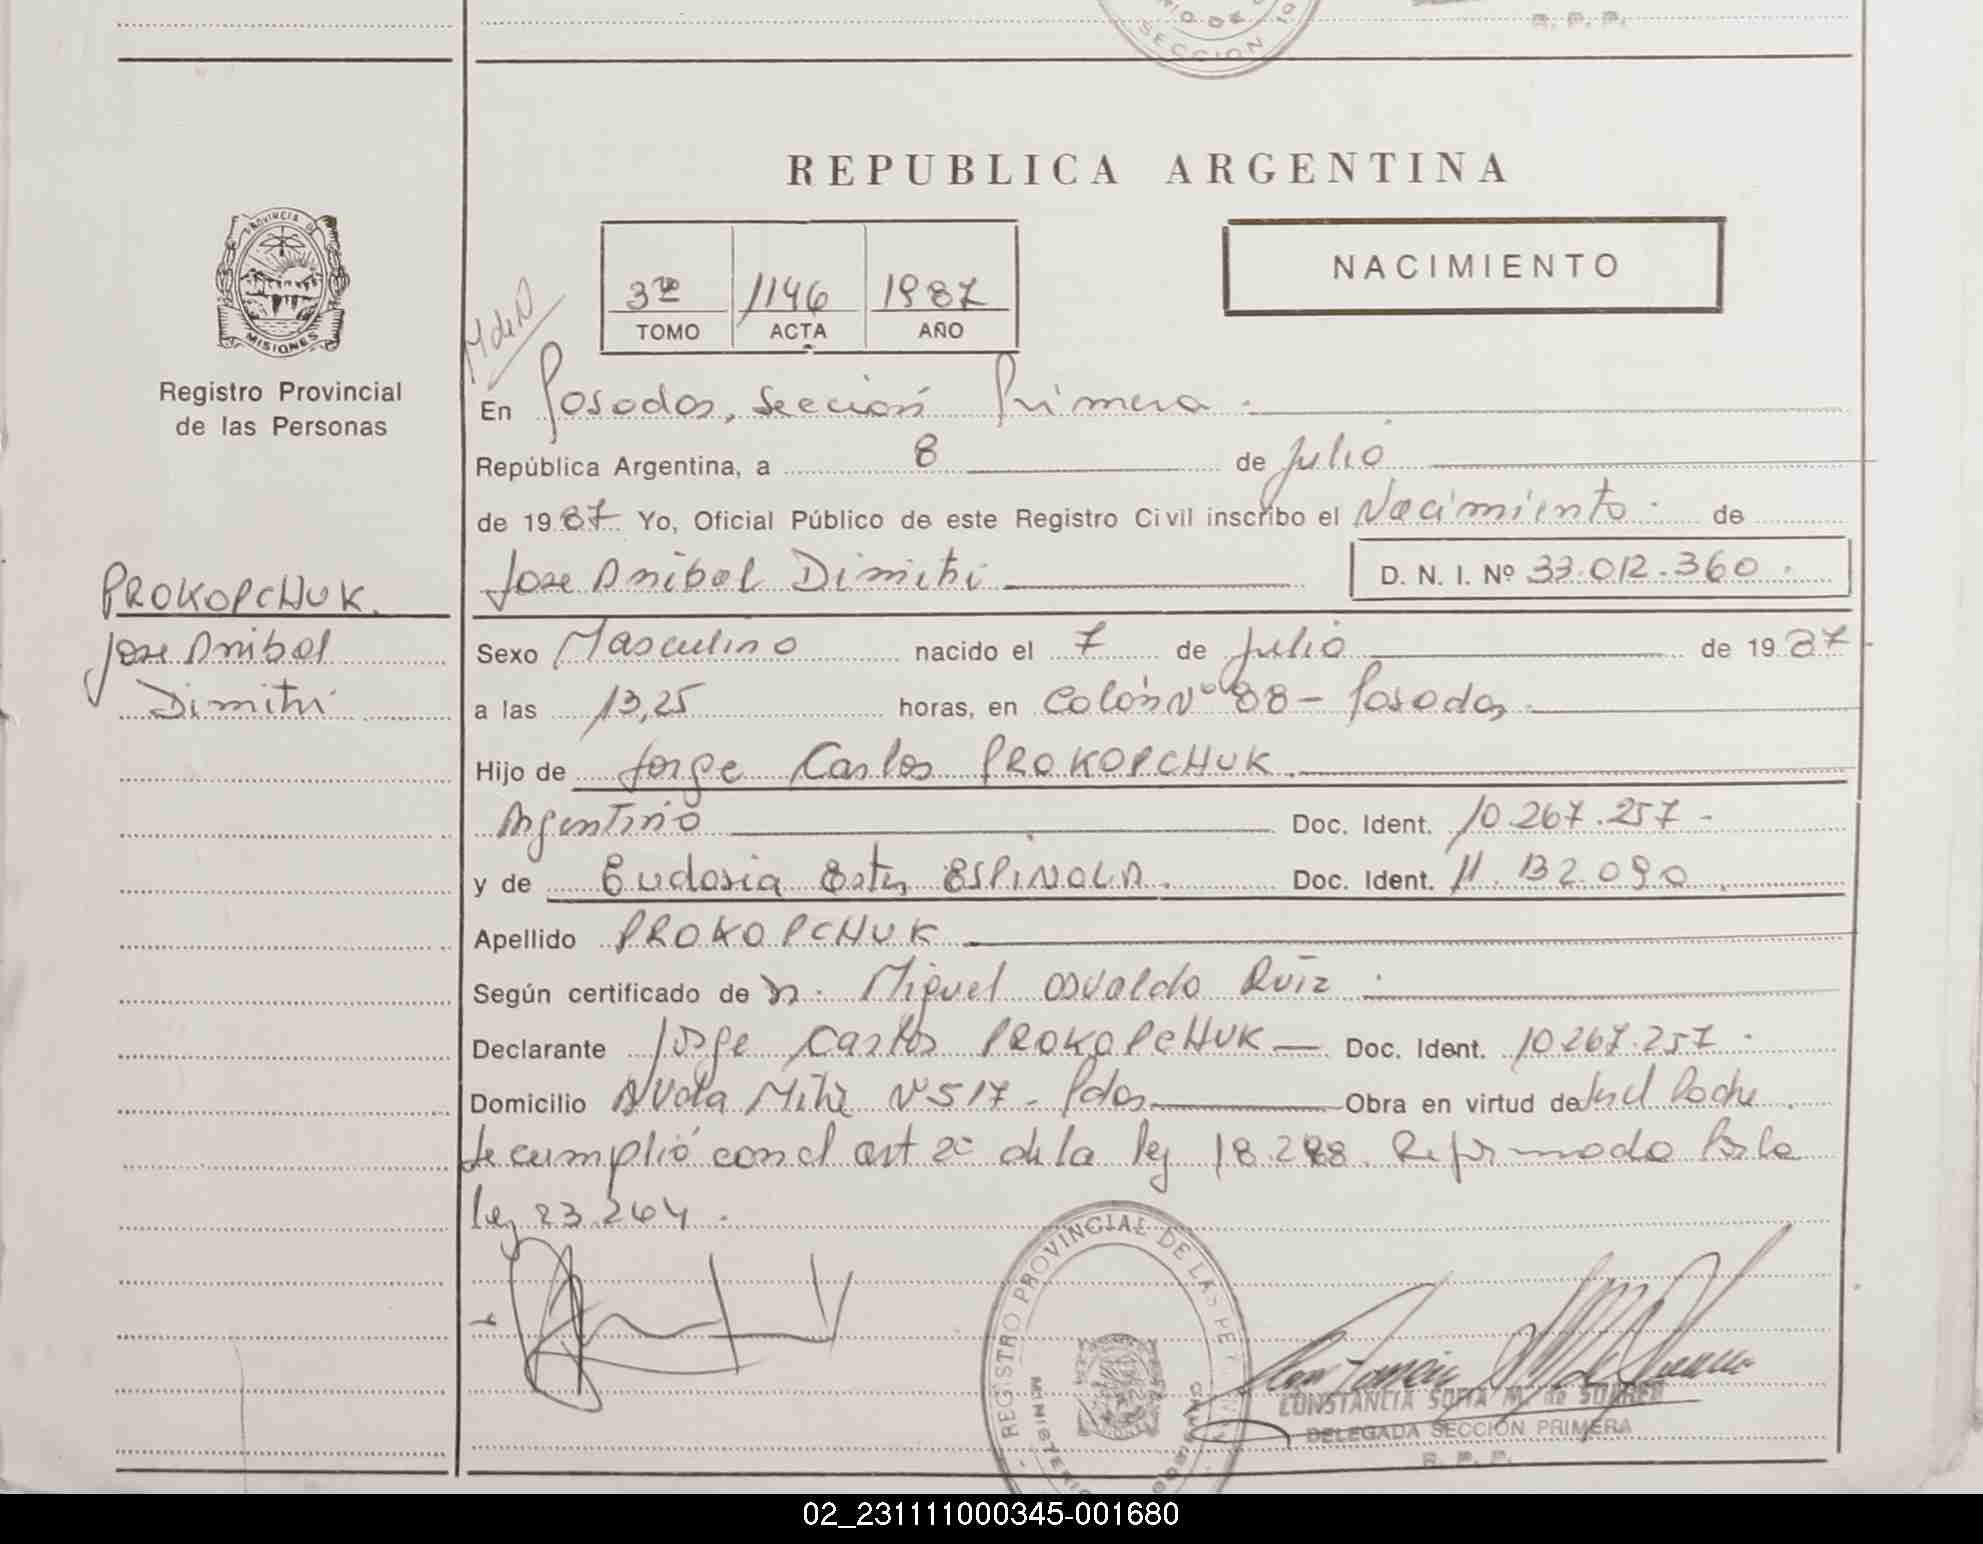 SECCION
R. P. P.
REPUBLICA ARGENTINA
PROVINCIA DE
MISIONES
Registro Provincial
de las Personas
NACIMIENTO
3ro 1146 1987
TOMO ACTA AÑO
M de N
En Posadas, Sección Primera.
República Argentina, a 8 de julio
de 1987 Yo, Oficial Público de este Registro Civil inscribo el Nacimiento. de
Jose Anibal Dimitri D. N. I. Nº 33.012.360.
PROKOPCHUK.
Jose Anibal
Dimitri
Sexo Masculino nacido el 7 de julio de 1987
a las 13,25 horas, en Colón Nº 88 - Posadas.
Hijo de Jorge Carlos PROKOPCHUK.
Argentino Doc. Ident. 10.267.257-
y de Eudosia Ester ESPINOLA. Doc. Ident. 11.132.090.
Apellido PROKOPCHUK
Según certificado de Dr. Miguel Osvaldo Ruiz.
Declarante Jorge Carlos PROKOPCHUK — Doc. Ident. 10.267.257.
Domicilio Avda Mitre Nº 517 - Pdas — Obra en virtud de
Se cumplió con el art 2º de la ley 18.248. Reformada Por la
ley 23.264.
REGISTRO PROVINCIAL DE LAS PER
MINISTERIO
CONSTANCIA SOFIA M. de SUAREZ
DELEGADA SECCION PRIMERA
R. P. P.
02_231111000345-001680